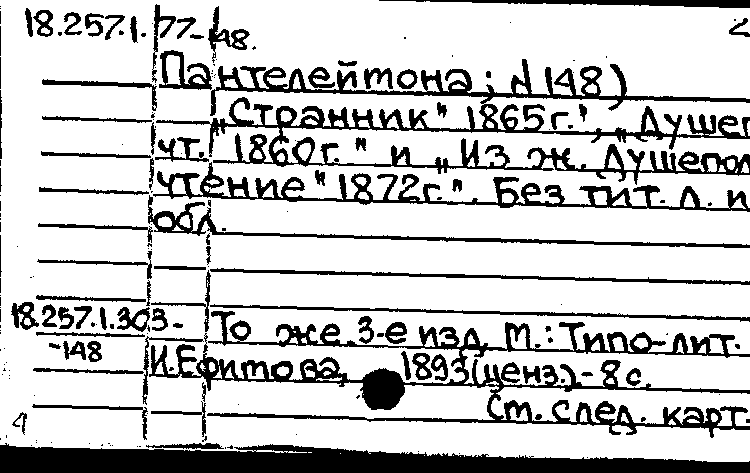 18.257.1.77-148. 2
Пантелеймона; N 148)
„Странник" 1865г.", „Душеп
чт. 1860г." и „Из ж. Душепол
чтение" 1872г.". Без тит. л. и
обл.
18.257.1.303-148 То же. 3-е изд. М.: Типо-лит.
И.Ефимова, 1893(ценз.).- 8 с.
См. след. карт.
4